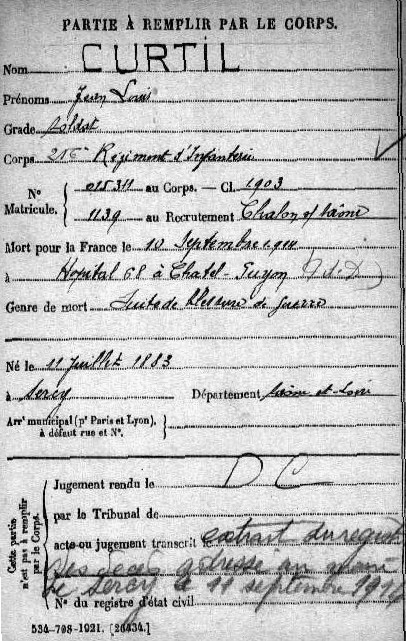 PARTIE À REMPLIR PAR LE CORPS.
Nom CURTIL
Prénoms Jean Louis
Grade soldat
Corps 216e Régiment d'Infanterie
N° Matricule. { 015311 au Corps. — Cl. 1903
1139 au Recrutement Chalon s/ Saône
Mort pour la France le 10 Septembre 1914
à Hopital 68 à Chatel-Guyon (P.d.D)
Genre de mort Suite de Blessure de Guerre
Né le 11 Juillet 1883
à Sercy Département Saône-et-Loire
Arrt municipal (pr Paris et Lyon), à défaut rue et N°. }
Cette partie n'est pas à remplir par le Corps.
Jugement rendu le D C
par le Tribunal de
acte ou jugement transcrit le extrait du registre
des décès adressé au maire
de Sercy le 11 septembre 1914
N° du registre d'état civil
534-708-1921. [26434.]